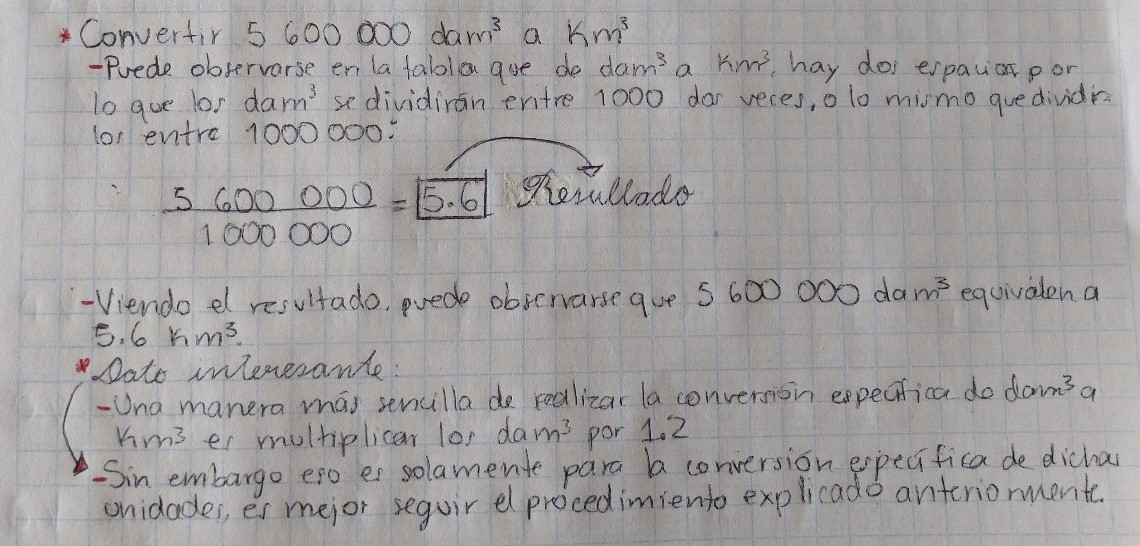 * Convertir 5 600 000 dam³ a Km³
-Puede observarse en la tabla que de dam³ a Km³, hay dos espacios por
lo que los dam³ se dividirán entre 1000 dos veces, o lo mismo que dividir-
los entre 1000 000:
5 600 000 = 5.6 Resultado
1 000 000
-Viendo el resultado, puede observarse que 5 600 000 dam³ equivalen a
5.6 Km³.
* Dato interesante:
-Una manera más sencilla de realizar la conversión específica de dam³ a
Km³ es multiplicar los dam³ por 1.2
-Sin embargo eso es solamente para la conversión específica de dichas
unidades, es mejor seguir el procedimiento explicado anteriormente.